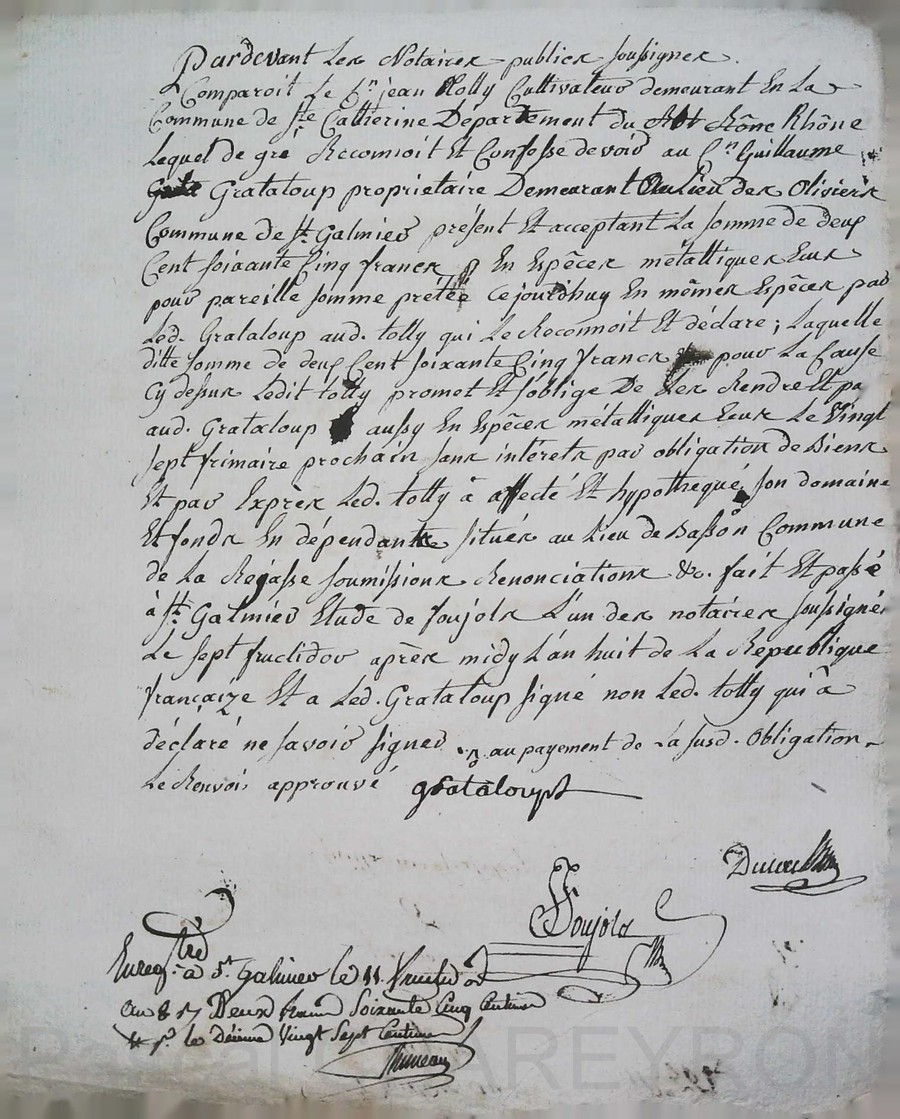 Pardevant Les Notaires publics soussignes.
Comparoit Le Cn jean Tolly Cultivateur demeurant En La
Commune de Ste Catherine Département du Rhône
Lequel de gré Reconnoit Et Confesse devoir au Cn Guillaume
Grataloup proprietaire Demeurant Au Lieu des Oliviers
Commune de St. Galmier présent Et acceptant La somme de deux
Cent soixante Cinq francs En Espèces métalliques Eux
pour pareille somme pretée Cejourdhuy En mêmes Espèces par
Led. Grataloup aud. tolly qui Le Reconnoit Et déclare; Laquelle
ditte somme de deux Cent soixante Cinq francs pour La Cause
Cy dessus Ledit tolly promet Et soblige De Les Rendre Et pa
aud. Grataloup aussy En Espèces métalliques Eux Le Vingt
sept frimaire prochain sans intérets par obligation de Biens
Et par Exprès Led. tolly à affecté Et hypothequé son domaine
Et fonds En dépendants situés au Lieu de Basson Commune
de La Rejasse soumissions Renonciations &c. fait Et passé
à St. Galmier Etude de soujols L'un des notaires soussignés
Le sept fructidor après midy L'an huit de La Republique
françaize Et a Led. Grataloup signé non Led. tolly qui à
déclaré ne savoir signer au payement de La susd. Obligation
Le Renvoi approuvé grataloupt
Soujols
Enregtré à St. Galmier le 11. fructidor
an 8 Deux francs Soixante Cinq Centimes
pr. le Décime Vingt Sept Centimes